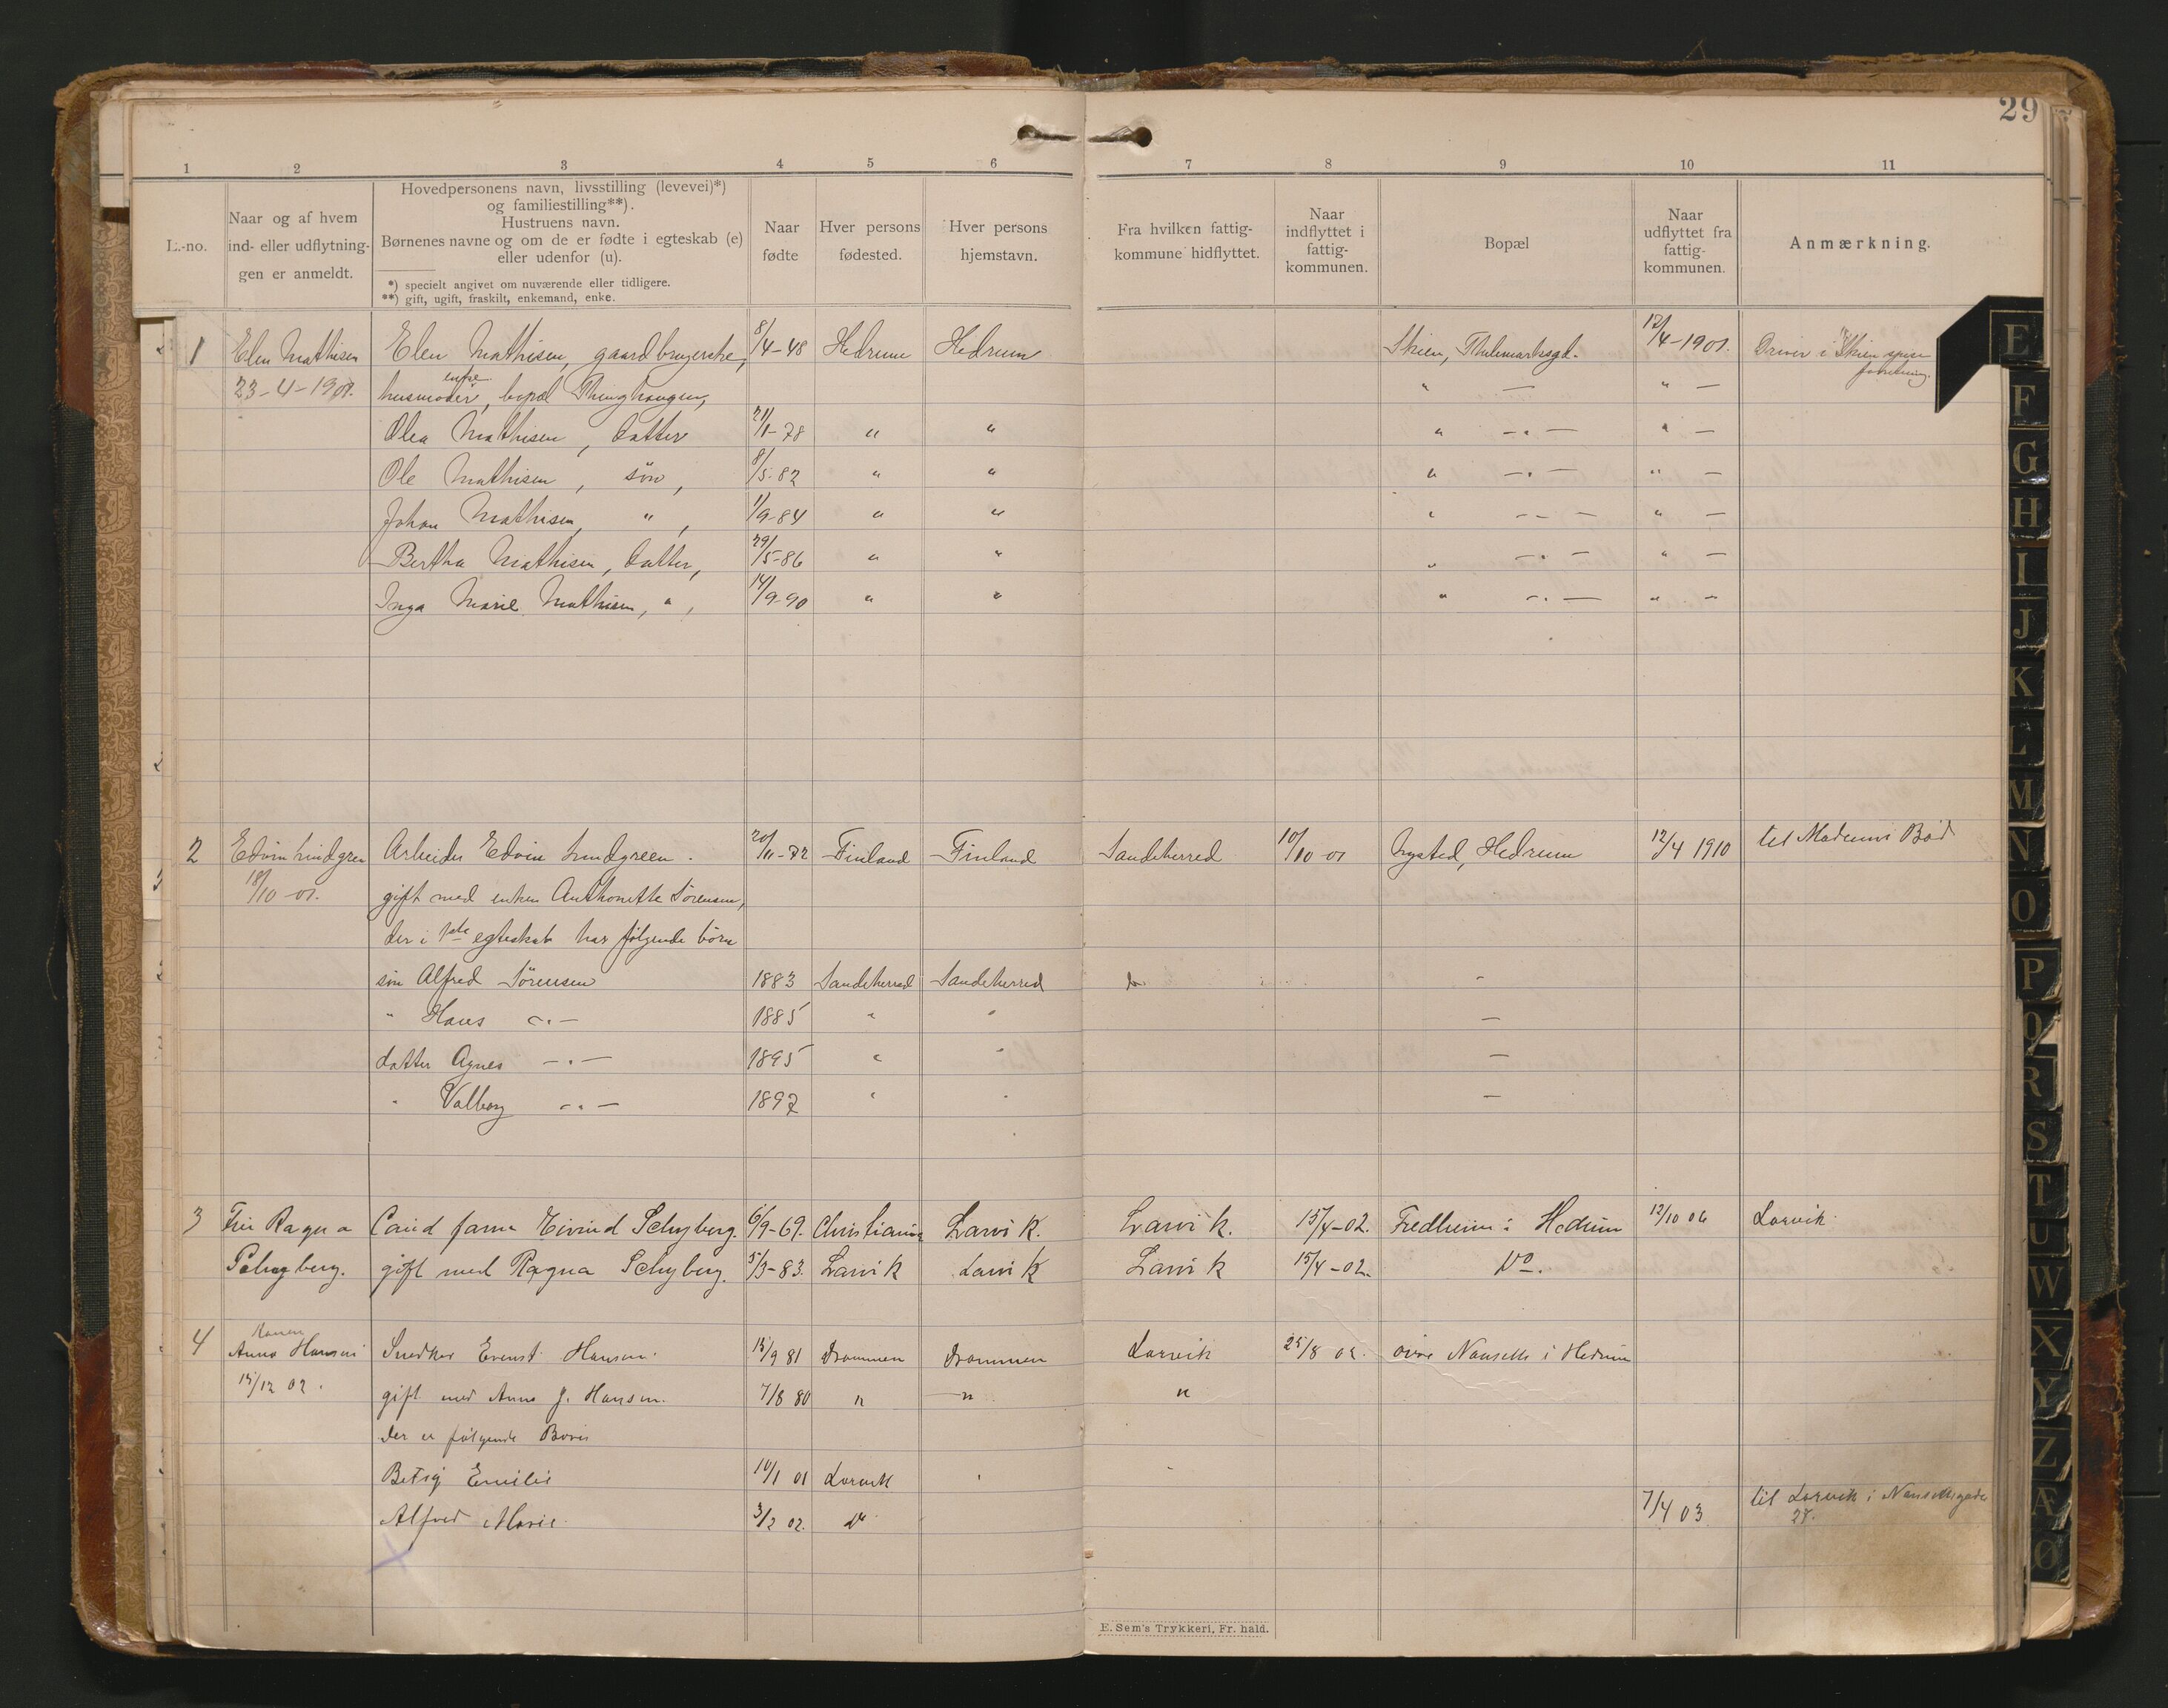 29
1 2 3 4 5 6 7 8 9 10 11
L.-no.
Naar og af hvem
ind- eller udflytnin-
gen er anmeldt.
Hovedpersonens navn, livsstilling (levevei)*)
og familiestilling**).
Hustruens navn.
Børnenes navne og om de er fødte i egteskab (e)
eller udenfor (u).
*) specielt angivet om nuværende eller tidligere.
**) gift, ugift, fraskilt, enkemand, enke.
Naar
fødte
Hver persons
fødested.
Hver persons
hjemstavn.
Fra hvilken fattig-
kommune hidflyttet.
Naar
indflyttet i
fattig-
kommunen.
Bopæl
Naar
udflyttet fra
fattig-
kommunen.
Anmærkning.
1 Elen Mathisen Elen Mathisen, gaardbrugerske, 8/4-48 Hedrum Hedrum Skien, Thelemarksgd. 12/4-1901. Driver i Skien spise
forretning.
23-4-1901. husmoder, enke bopæl Thinghaugen, " — " —
Olea Mathisen, datter 21/1-78 " " " -"- " —
Ole Mathisen, sön, 8/5-82 " " " -"- " —
Johan Mathisen, ", 1/9-84 " " " -"- " —
Bertha Mathisen, datter, 29/5-86 " " " -"- " —
Inga Marie Mathisen, ", 14/9-90 " " " -"- " —
2 Edvin Lindgren Arbeider Edvin Lindgreen. 20/11-72 Finland Finland Sandeherred 10/10-01 Nysted, Hedrum 12/4 1910 til Madeums Bød
18/10-01. gift med enken Anthonette Sörensen,
der i 1ste egteskab har følgende børn
sön Alfred Sörensen 1883 Sandeherred Sandeherred do. -
" Hans -"- 1885 " " —
datter Agnes -"- 1895 " " —
" Valborg -"- 1897 " " —
3 Fru Ragna Cand farm Eivind Schyberg. 6/9-69. Christiania Larvik. Larvik. 15/4-02. Fredheim i Hedrum 12/10 06 Larvik
Schyberg. gift med Ragna Schyberg. 5/3-83. Larvik Larvik Larvik 15/4-02. Do.
4 Konen
Anna Hansen Snedker Evenst Hansen. 15/9 81 Drammen Drammen Larvik 25/8 02. øvre Nanset i Hedrum
15/12 02. gift med Anna J. Hansen. 7/8 80 " " "
der er følgende Børn
Betsy Emilie 10/1 01 Larvik
Alfred Marie 3/2 02. Do 7/4 03 til Larvik i Nansetgaden
27.
E. Sem's Trykkeri, Fr. hald.
E
F
G
H
I
J
K
L
M
N
O
P
Q
R
S
T
U
W
X
Y
Z
Æ
Ø